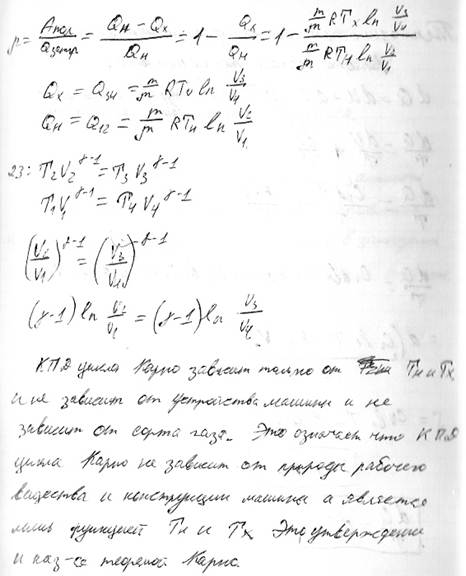 η = Aпол/Qзатр = (Qн - Qх)/Qн = 1 - Qх/Qн = 1 - (m/μ RTх ln V3/V4)/(m/μ RTн ln V2/V1)
Qх = Q34 = m/μ RTх ln V3/V4
Qн = Q12 = m/μ RTн ln V2/V1
23: T2V2^γ-1 = T3V3^γ-1
T1V1^γ-1 = T4V4^γ-1
(V2/V1)^γ-1 = (V3/V4)^γ-1
(γ-1) ln V2/V1 = (γ-1) ln V3/V4
КПД цикла Карно зависит только от Tн и Tх
и не зависит от устройства машины и не
зависит от сорта газа. Это означает что КПД
цикла Карно не зависит от природы рабочего
вещества и конструкции машины а является
лишь функцией Tн и Tх. Это утверждение
и наз-ся теоремой Карно.